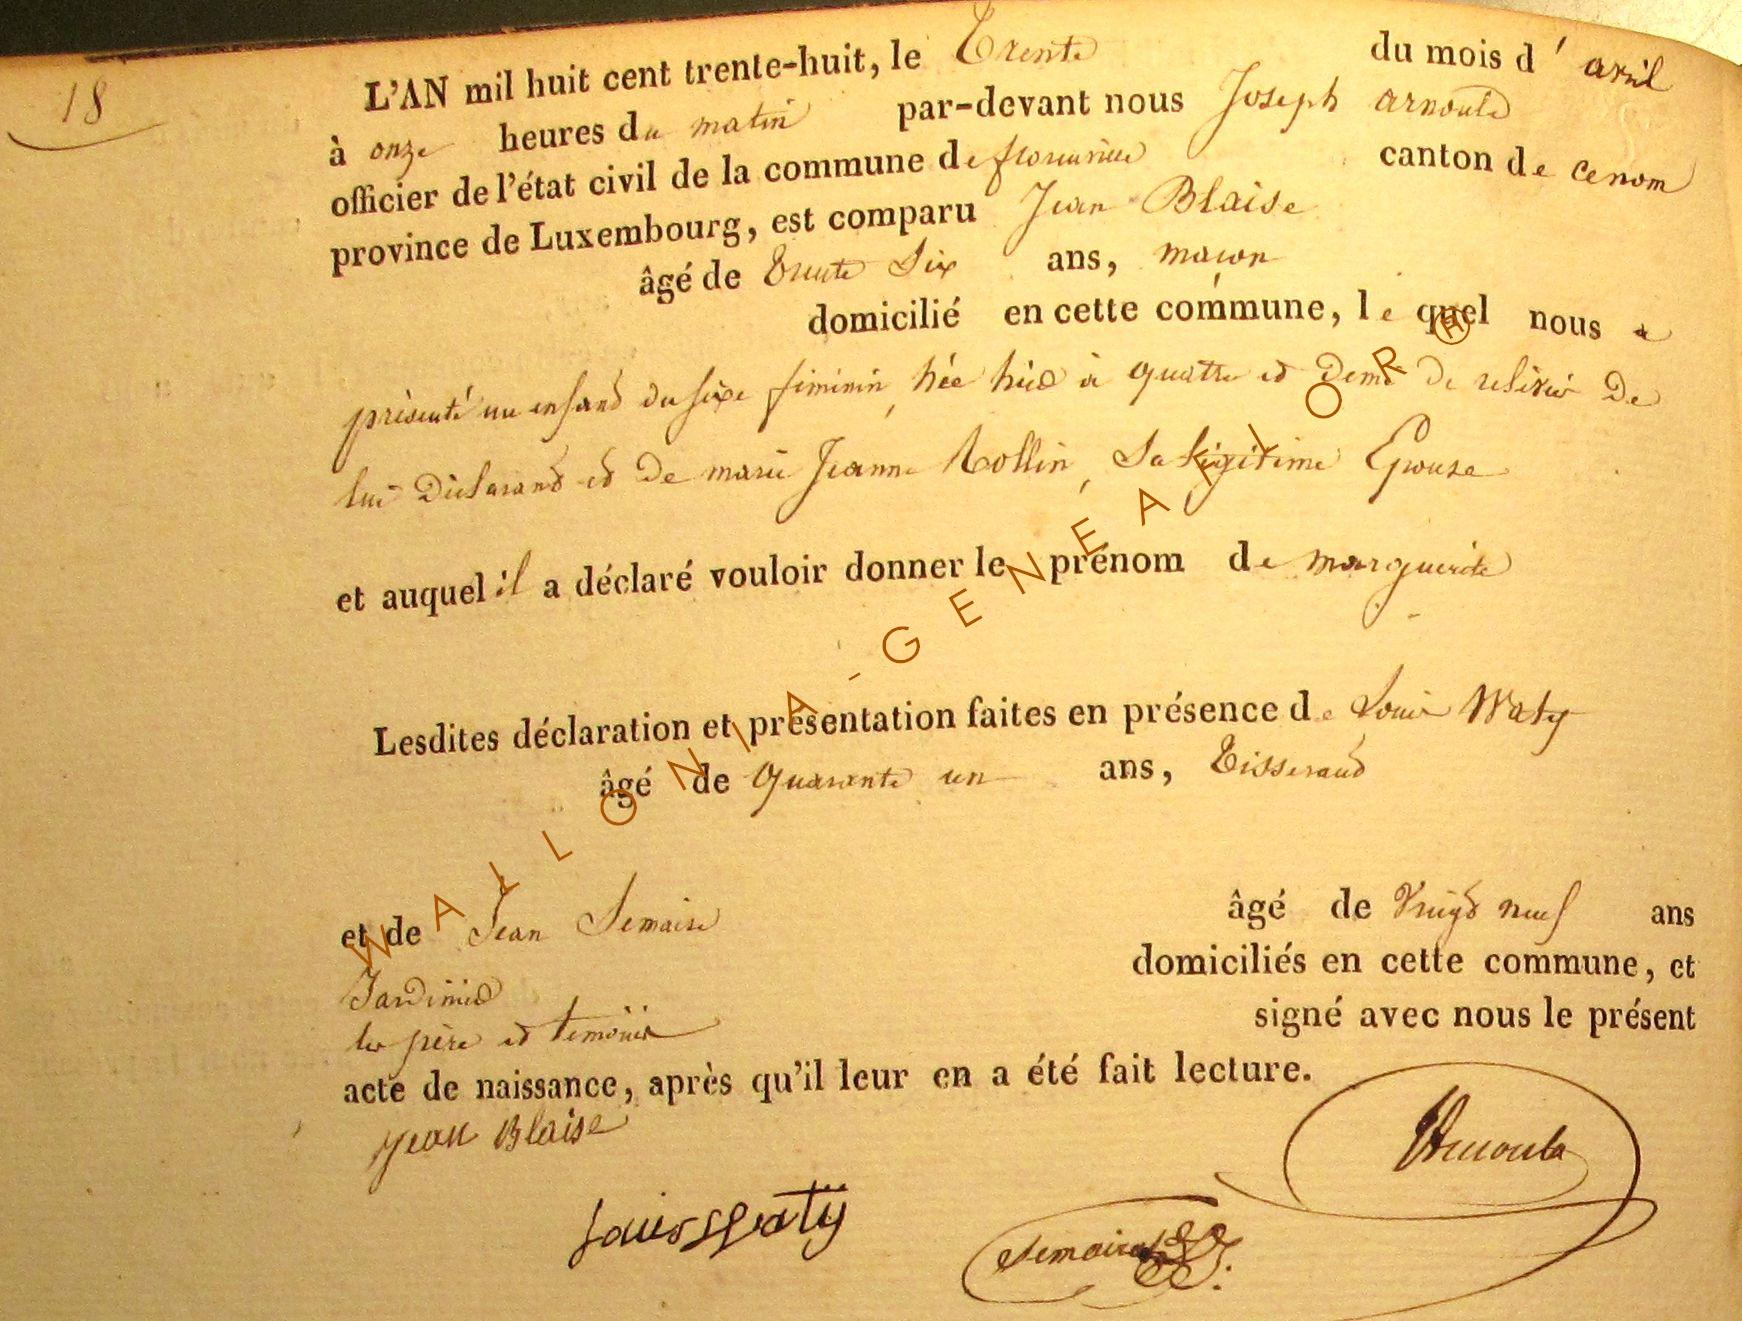 18
L'AN mil huit cent trente-huit, le Trente du mois d'avril
à onze heures du matin par-devant nous Joseph arnould
officier de l'état civil de la commune de florenville canton de ce nom
province de Luxembourg, est comparu Jean Blaise
âgé de trente Six ans, maçon
domicilié en cette commune, le quel nous a
présenté un enfant du sexe feminin, née hier à quatre et demi de relévée de
lui Déclarant et De marie Jeanne Rollin, Sa légitime Epouse
et auquel il a déclaré vouloir donner le prénom de marguerite
Lesdites déclaration et présentation faites en présence de Louis Waty
âgé de quarante un ans, Tisserand
et de Jean Lemaire âgé de vingt neuf ans
Jardinier domiciliés en cette commune, et
les père et temoins signé avec nous le présent
acte de naissance, après qu'il leur en a été fait lecture.
jean Blaise
Arnould
Louis Waty
Lemaire
WALLONIA-GENEALLOR®